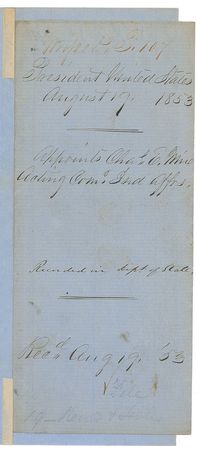 President United States
August 19. 1853
Appoints Chas. E. Mix
Acting Com. Ind Affrs.
Recorded in Dept of State
Recd. Aug 19. '53
File